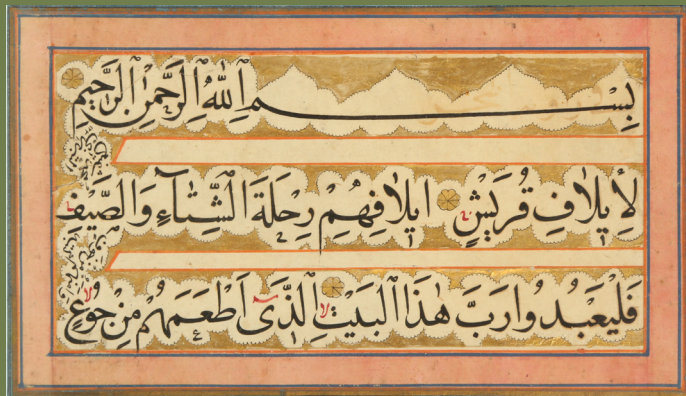 بِسْمِ اللّٰهِ الرَّحْمٰنِ الرَّحِيمِ
لِأِيلَافِ قُرَيْشٍ ايلَافِهِمْ رِحْلَةَ الشِّتَٓاءِ وَالصَّيْفِ
فَلْيَعْبُدُوا رَبَّ هٰذَا الْبَيْتِ الَّذٓى اَطْعَمَهُمْ مِنْ جُوعٍ